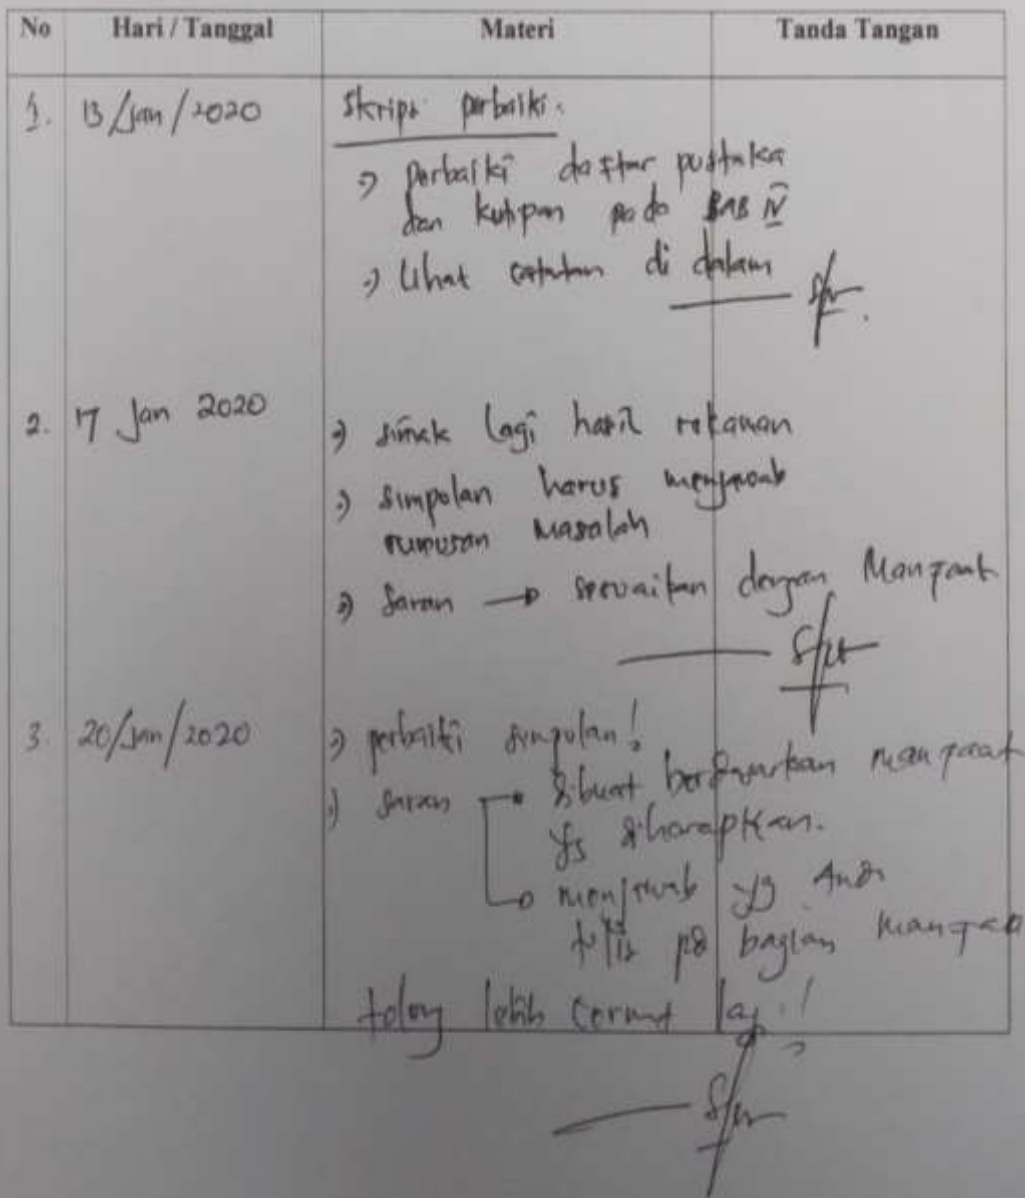 No Hari / Tanggal Materi Tanda Tangan
1. 13/Jan/2020 Skripsi perbaiki.
→ perbaiki daftar pustaka
dan kutipan pada BAB IV
→ lihat catatan di dalam
2. 17 Jan 2020
→ simak lagi hasil rekaman
→ simpulan harus menjawab
rumusan masalah
→ saran → sesuaikan dengan Manfaat
3. 20/Jan/2020 → perbaiki simpulan!
→ saran → dibuat berdasarkan manfaat
yg diharapkan.
→ menjawab yg Anda
tulis pd bagian manfaat
tolong lebih cermat lagi!